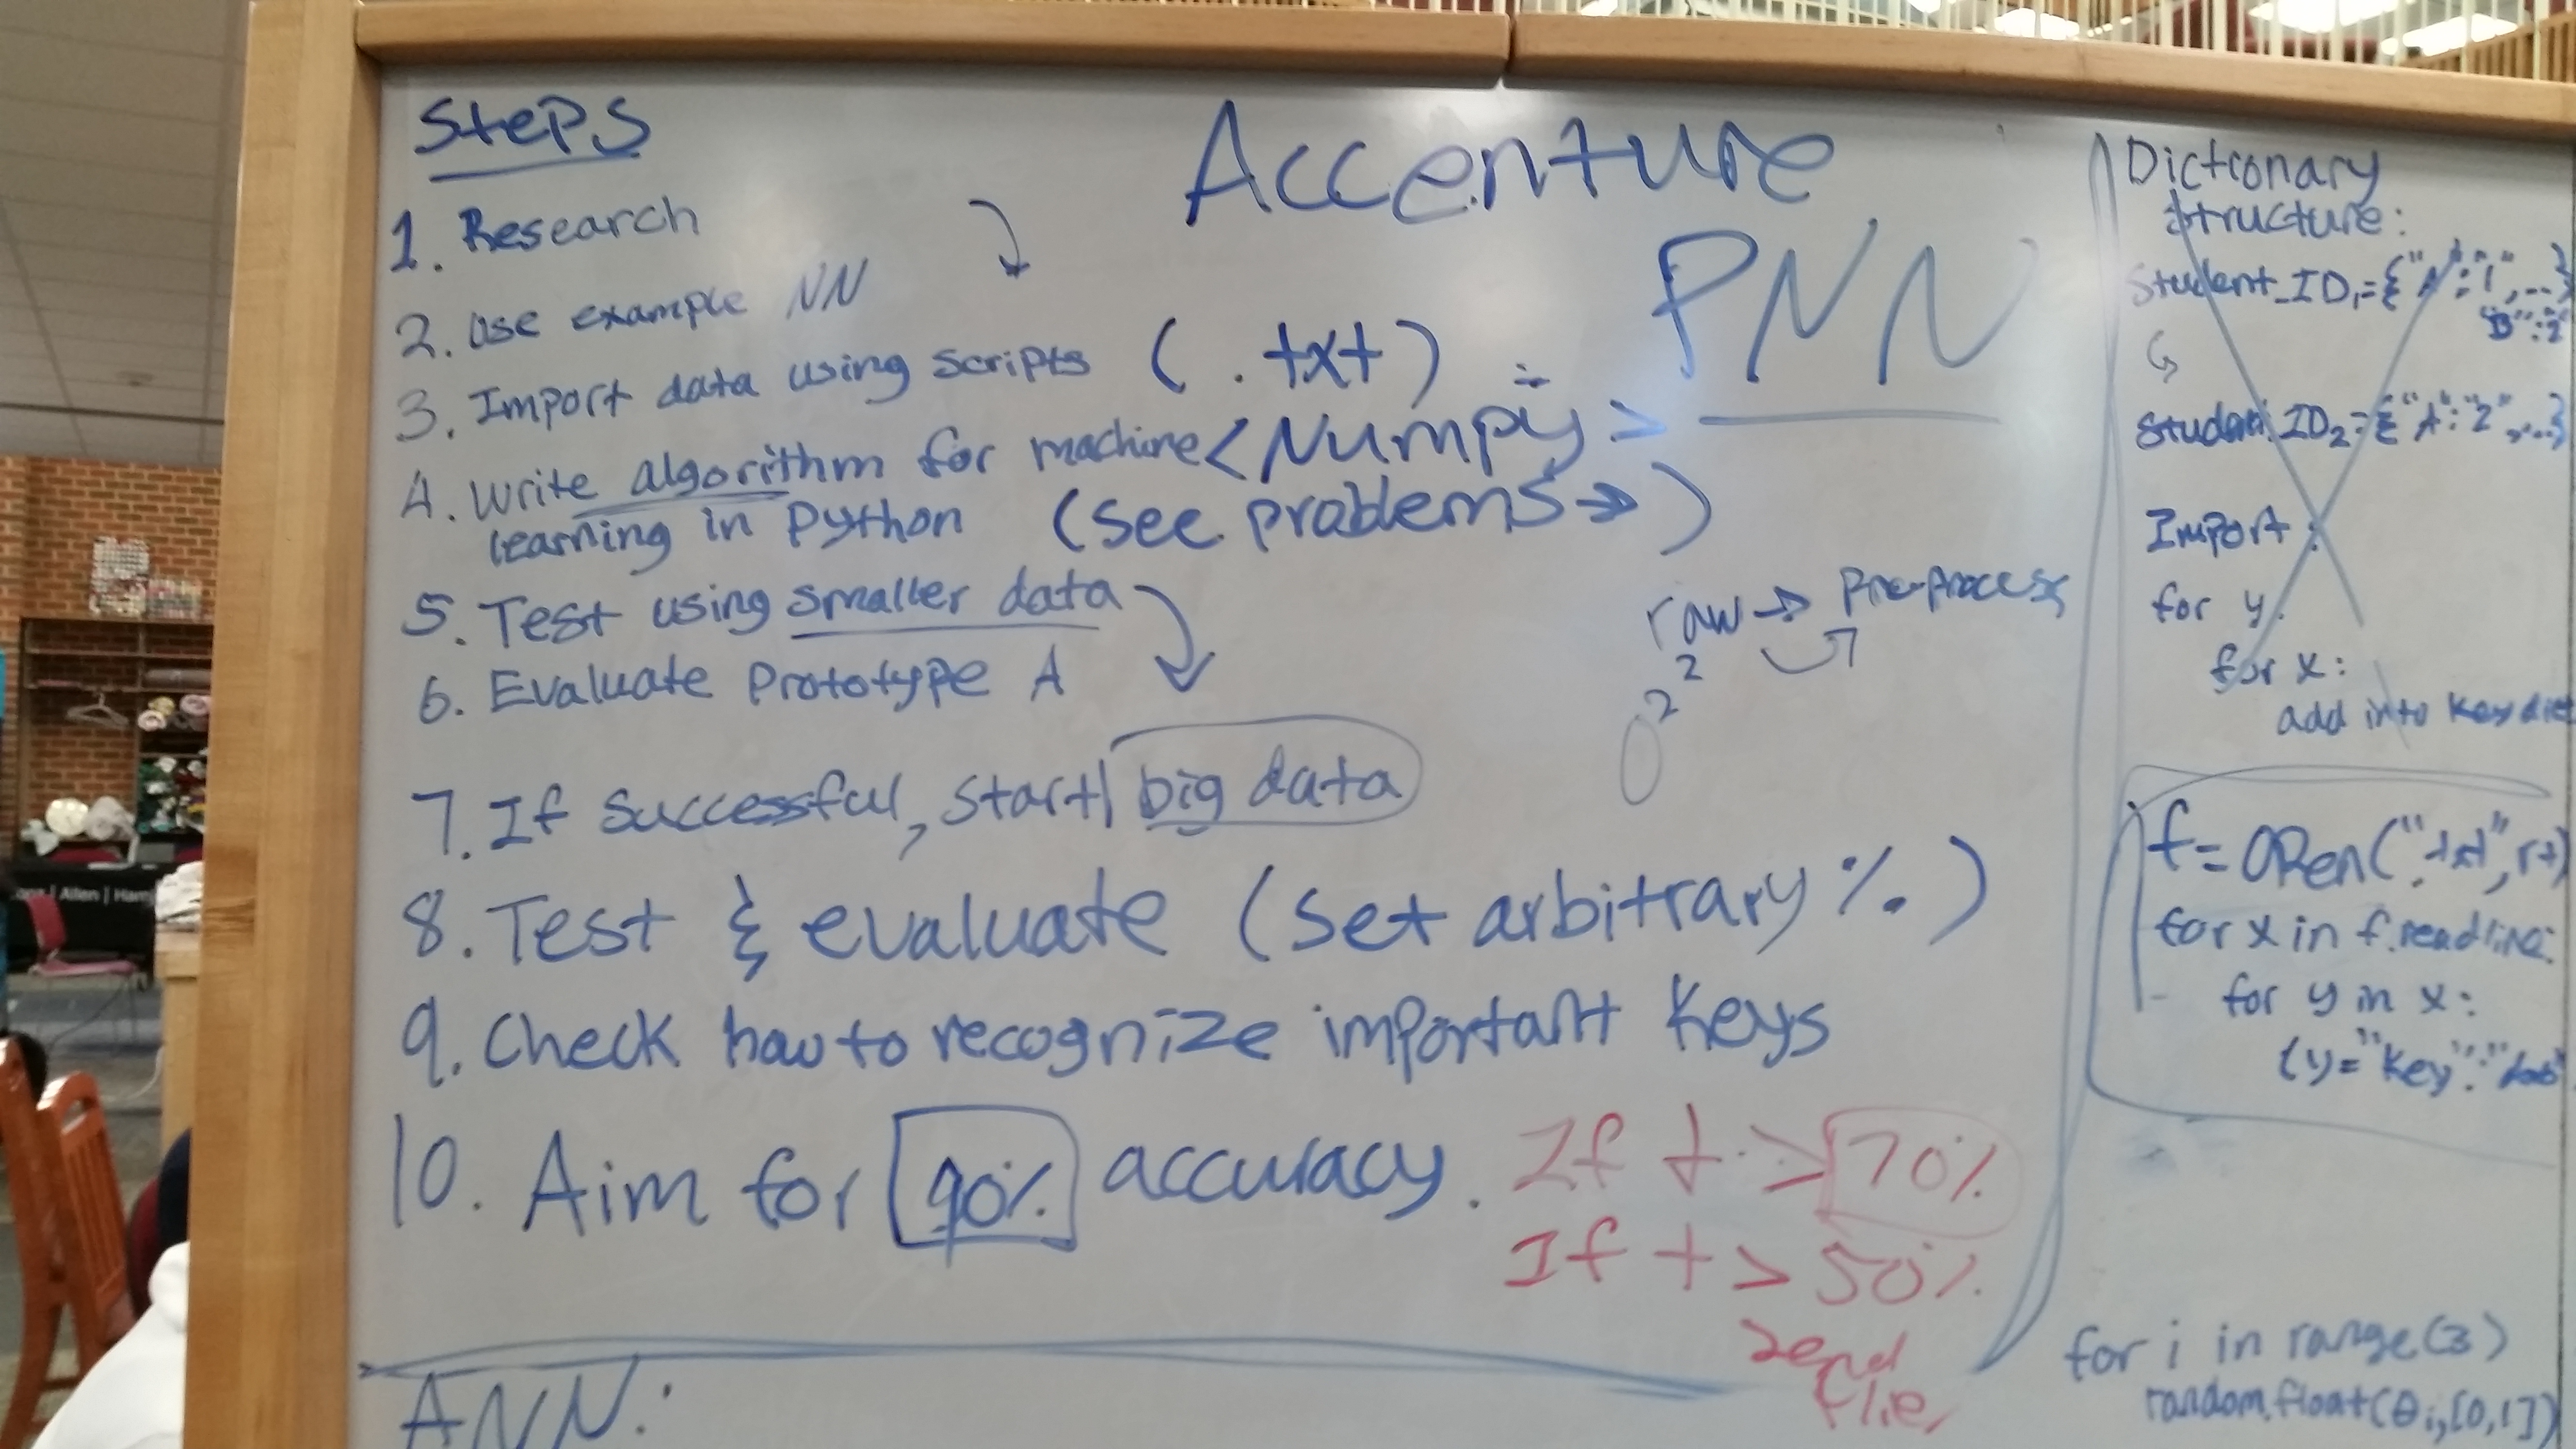 Steps
Accenture
PNN
1. Research
2. Use example NN
3. Import data using scripts (.txt)
4. Write algorithm for machine <Numpy>
learning in Python (see problems →)
5. Test using smaller data
6. Evaluate Prototype A
raw → Pre-process
7. If successful, start big data
8. Test & evaluate (set arbitrary %)
9. Check how to recognize important keys
10. Aim for 90% accuracy.
If t > 70%
If t > 50%
send
flier
ANN:
Dictionary
Structure:
Student_ID1={"A":"1",...}
"B":"2"
Student_ID2={"A":"2",...}
Import:
for y:
for x:
add into key dict
f=open(".txt",r+)
for x in f.readline:
for y in x:
(y="key":
for i in range(3)
random.float(θi,[0,1])
| Allen |